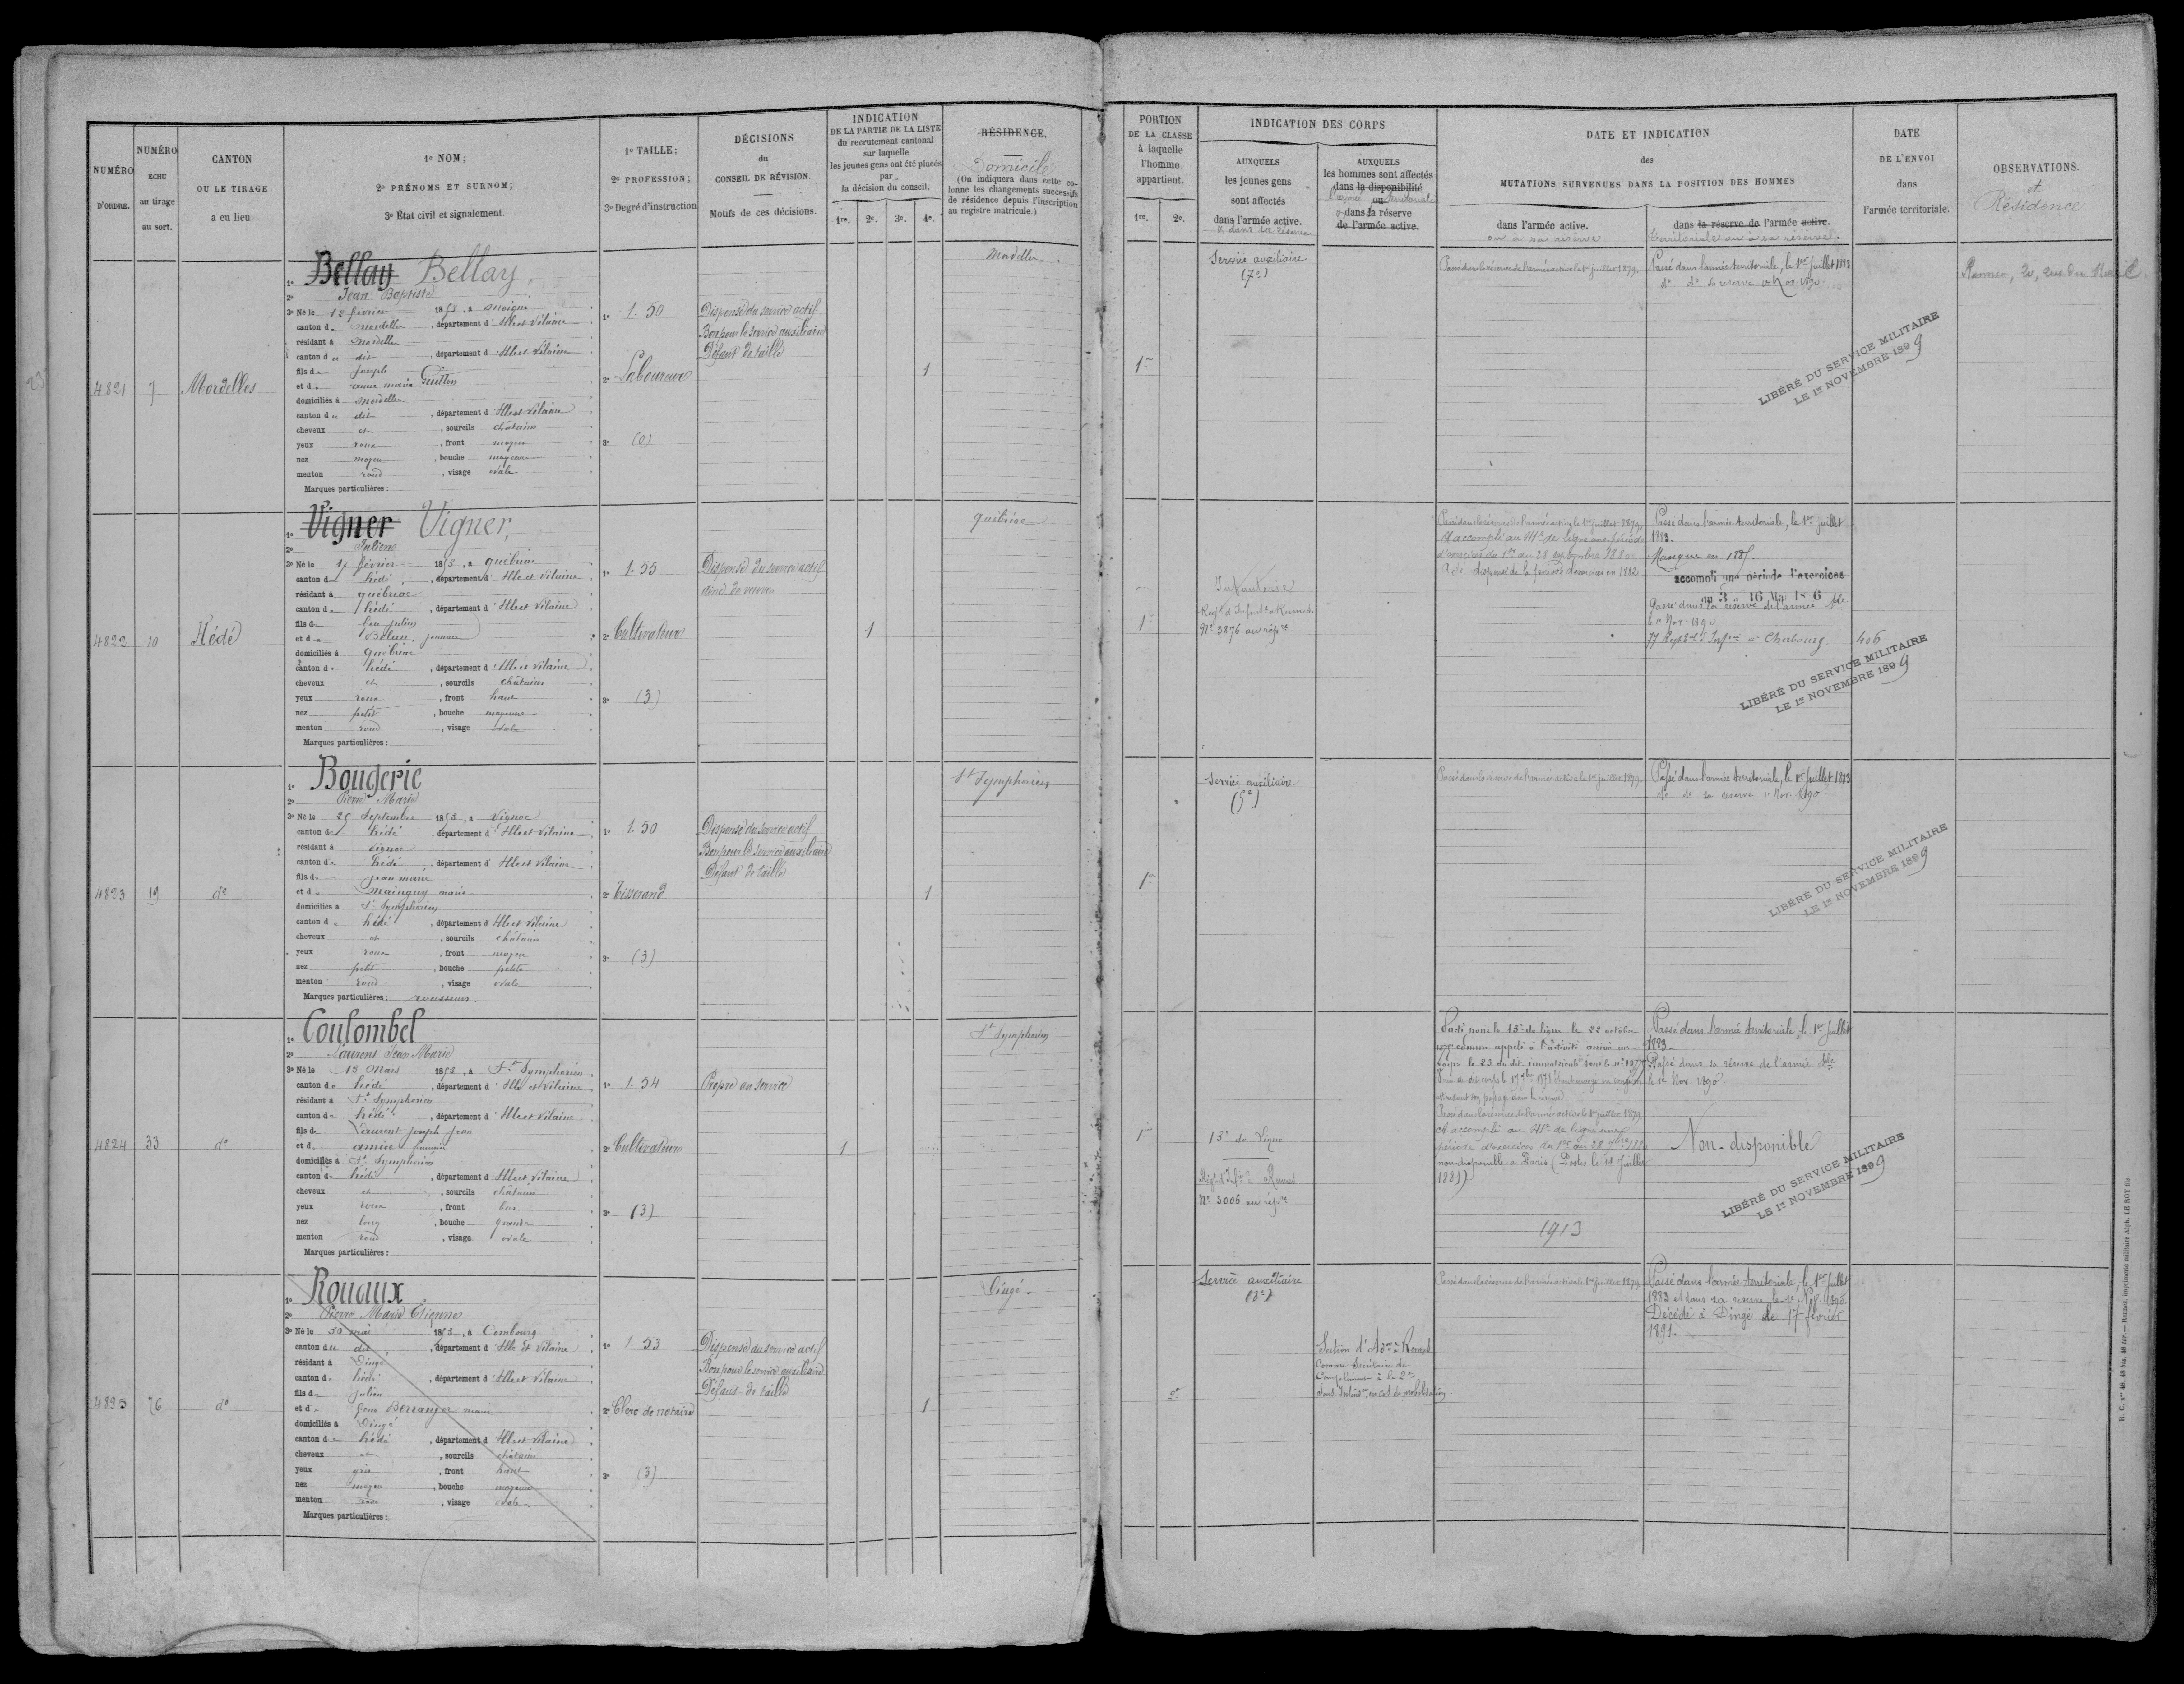 NUMÉRO
D'ORDRE.
NUMÉRO
ÉCHU
au tirage
au sort.
CANTON
OU LE TIRAGE
a eu lieu.
1º NOM;
2º PRÉNOMS ET SURNOM;
3º État civil et signalement.
1º TAILLE;
2º PROFESSION;
3º Degré d'instruction
DÉCISIONS
du
CONSEIL DE RÉVISION.
Motifs de ces décisions.
INDICATION
DE LA PARTIE DE LA LISTE
du recrutement cantonal
sur laquelle
les jeunes gens ont été placés
par
la décision du conseil.
1re. 2e. 3e. 4e.
RÉSIDENCE.
Domicile
(On indiquera dans cette co-
lonne les changements successifs
de résidence depuis l'inscription
au registre matricule.)
PORTION
DE LA CLASSE
à laquelle
l'homme
appartient.
1re. 2e.
INDICATION DES CORPS
AUXQUELS
les jeunes gens
sont affectés
dans l'armée active.
ou dans sa réserve
AUXQUELS
les hommes sont affectés
dans la disponibilité
l'armée ou territoriale
dans la réserve
de l'armée active.
DATE ET INDICATION
des
MUTATIONS SURVENUES DANS LA POSITION DES HOMMES
dans l'armée active.
ou à sa réserve
dans la réserve de l'armée active.
territoriale ou à sa réserve.
DATE
DE L'ENVOI
dans
l'armée territoriale.
OBSERVATIONS.
et
Résidence
4821 7 Mordelles
1º Bellay Bellay,
2º Jean Baptiste
3º Né le 12 février 1853, à Moigné
canton de Mordelles, département d'Ille et Vilaine
résidant à Mordelles
canton du dit, département d'Ille et Vilaine
fils de Joseph
et de anne marie Guillon
domiciliés à Mordelles
canton du dit, département d'Ille et Vilaine
cheveux et, sourcils châtains
yeux roux, front moyen
nez moyen, bouche moyenne
menton rond, visage ovale
Marques particulières:
1º 1.50
2º Laboureur
3º (0)
Dispensé du service actif
Bon pour le service auxiliaire
Défaut de taille
1
Mordelles
1re
Service auxiliaire
(7e)
Passé dans la réserve de l'armée active le 1er juillet 1879.
Passé dans l'armée territoriale, le 1er juillet 1883
do do sa réserve 1er Nov 1890
LIBÉRÉ DU SERVICE MILITAIRE
LE 1er NOVEMBRE 1899
Rennes, 20, rue du
4822 10 Hédé
1º Vigner Vigner,
2º Julien
3º Né le 17 février 1853, à Québriac
canton de hédé, département d'Ille et Vilaine
résidant à québriac
canton de hédé, département d'Ille et Vilaine
fils de feu julien
et de Belan, jeanne
domiciliés à Québriac
canton de hédé, département d'Ille et Vilaine
cheveux et, sourcils châtains
yeux roux, front haut
nez petit, bouche moyenne
menton rond, visage ovale
Marques particulières:
1º 1.55
2º Cultivateur
3º (3)
Dispensé du service actif
aîné de veuve
1
québriac
1re
Infanterie
Regt d'Infie de Rennes
Nº 3876 au répre
Passé dans la réserve de l'armée active le 1er juillet 1879.
A accompli au 41e de ligne une période
d'exercices du 1er au 28 septembre 1880
A été dispensé de la période d'exercices en 1882
Passé dans l'armée territoriale, le 1er juillet
1883.
Manque en 1885.
accompli une période d'exercices
du 3 au 16 Mai 1886
Passé dans la réserve de l'armée tle
le 1er Nov. 1890
77 Regt tal d'Infrie à Cherbourg 406
LIBÉRÉ DU SERVICE MILITAIRE
LE 1er NOVEMBRE 1899
4823 19 do
1º Bougerie
2º Pierre Marie
3º Né le 25 Septembre 1853, à Vignoc
canton de hédé, département d'Ille et Vilaine
résidant à Vignoc
canton de hédé, département d'Ille et Vilaine
fils de jean marie
et de Mainguy marie
domiciliés à St Symphorien
canton de hédé, département d'Ille et Vilaine
cheveux et, sourcils châtains
yeux roux, front moyen
nez petit, bouche petite
menton rond, visage ovale
Marques particulières: rousseurs.
1º 1.50
2º Tisserand
3º (3)
Dispensé du service actif
Bon pour le service auxiliaire
Défaut de taille
1
St Symphorien
1re
Service auxiliaire
(5e)
Passé dans la réserve de l'armée active le 1er juillet 1879.
Passé dans l'armée territoriale, le 1er juillet 1883
do do sa réserve 1er Nov. 1890
LIBÉRÉ DU SERVICE MILITAIRE
LE 1er NOVEMBRE 1899
4824 33 do
1º Coulombel
2º Laurent Jean Marie
3º Né le 13 Mars 1853, à St Symphorien
canton de hédé, département d'Ille et Vilaine
résidant à St Symphorien
canton de hédé, département d'Ille et Vilaine
fils de Laurent joseph jean
et de amice
domiciliés à St Symphorien
canton de hédé, département d'Ille et Vilaine
cheveux et, sourcils châtains
yeux roux, front bas
nez long, bouche grande
menton rond, visage ovale
Marques particulières:
1º 1.54
2º Cultivateur
3º (3)
Propre au service
1
St Symphorien
1re
15e de ligne
Régt d'Infie à Rennes
Nº 3006 au répre
Parti pour le 15e de ligne le 22 octobre
appelé à l'activité arrivé au
corps le 23 du dit, immatriculé sous le nº
attendant son passage dans la réserve
Passé dans la réserve de l'armée active le 1er juillet 1879
A accompli au 41e de ligne une
période d'exercices du 1er au 28 7bre 1880
non disponible à Paris (Postes le 18 Juillet
1881)
1913
Passé dans l'armée territoriale, le 1er juillet
1883
Passé dans la réserve de l'armée tle
le 1er Nov. 1890
Non-disponible
LIBÉRÉ DU SERVICE MILITAIRE
LE 1er NOVEMBRE 1899
4825 76 do
1º Rouaux
2º Pierre Marie Etienne
3º Né le 30 mai 1853, à Combourg
canton du dit, département d'Ille et Vilaine
résidant à Dingé
canton de hédé, département d'Ille et Vilaine
fils de julien
et de feue Berranger marie
domiciliés à Dingé
canton de hédé, département d'Ille et Vilaine
cheveux et, sourcils châtains
yeux gris, front haut
nez moyen, bouche moyenne
menton rond, visage ovale.
Marques particulières:
1º 1.53
2º Clerc de notaire
3º (3)
Dispensé du service actif
Bon pour le service auxiliaire
Défaut de taille
1
Dingé.
2e
Service auxiliaire
Section d'Adon à Rennes
Comme Secrétaire de
Complément à la 2e
en cas de mobilisation
Passé dans la réserve de l'armée active le 1er juillet 1879
Passé dans l'armée territoriale, le 1er juillet
1883 et dans sa réserve le 1er Nov. 1890.
Décédé à Dingé le 17 février
1891.
R. C. nos 48, 48 bis, 48 ter. — Rennes, imprimerie militaire Alph. LE ROY fils